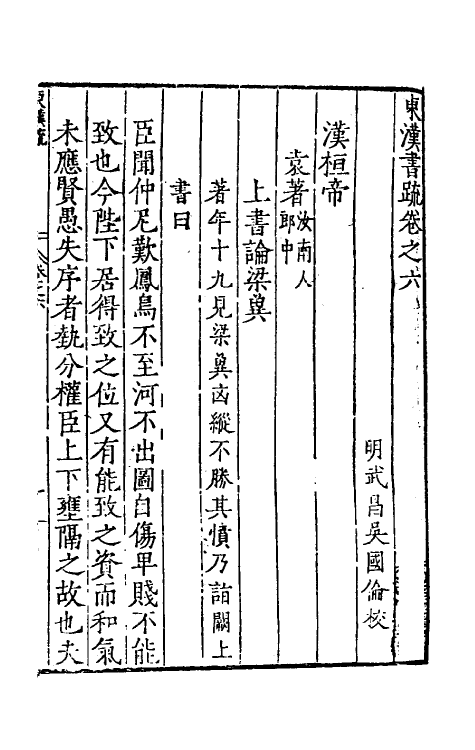 東漢書疏卷之六
明武昌吳國倫校
漢桓帝
袁著汝南人郎中
上書論梁兾
著年十九見梁兾凶縱不勝其憤乃詣闕上
書曰
臣聞仲尼歎鳳鳥不至河不出圖自傷卑賤不能
致也今陛下居得致之位又有能致之資而和氣
未應賢愚失序者埶分權臣上下壅隔之故也夫